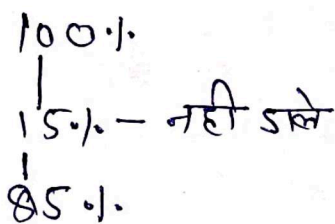 100%
15% - नही डाले
85%